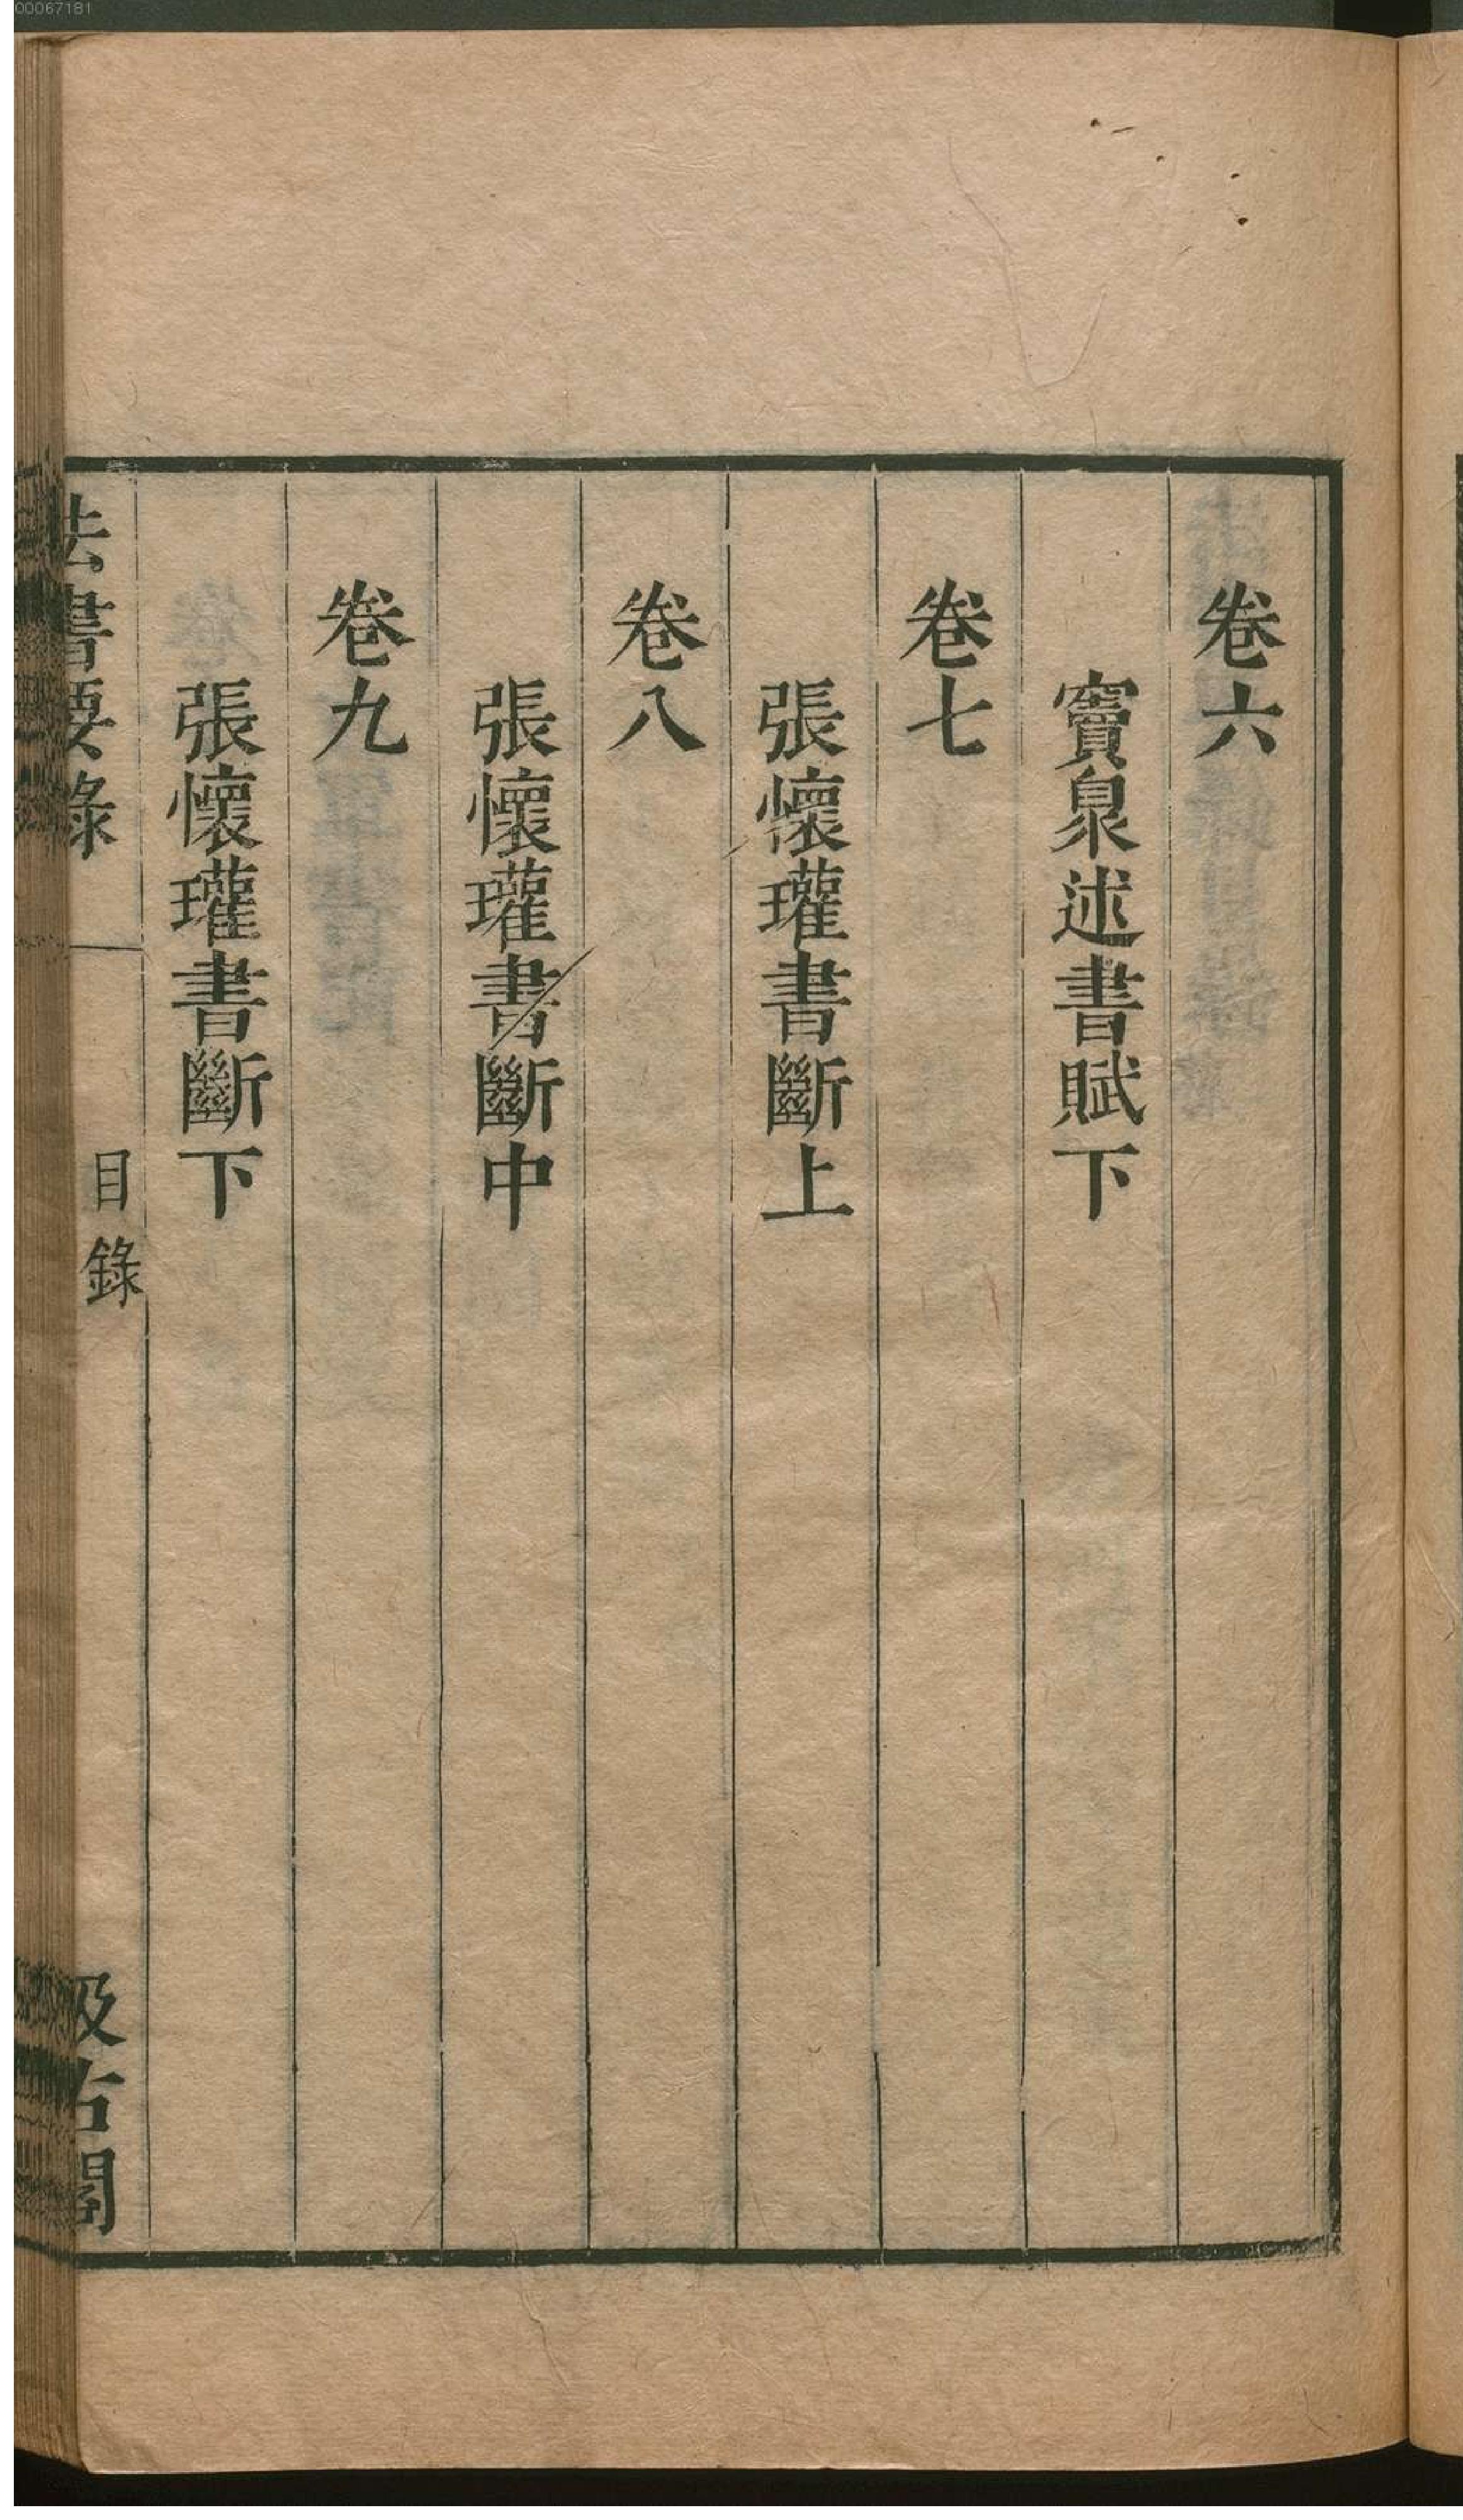 00067181
卷六
竇臮述書賦下
卷七
張懷瓘書斷上
卷八
張懷瓘書斷中
卷九
張懷瓘書斷下
法書要錄
目錄
汲古閣